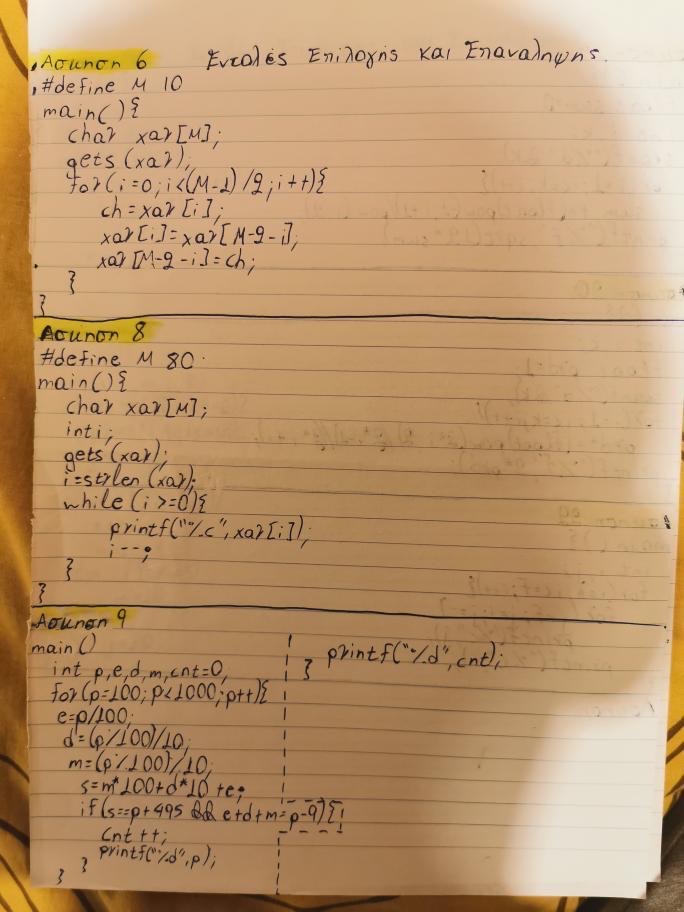 Άσκηση 6 Εντολές Επιλογής και Επανάληψης.
#define M 10
main(){
char xar[M];
gets(xar);
for(i=0;i<(M-1)/2;i++){
ch=xar[i];
xar[i]=xar[M-2-i];
xar[M-2-i]=ch;
}
}
Άσκηση 8
#define M 80
main(){
char xar[M];
int i;
gets(xar);
i=strlen(xar);
while(i>=0){
printf("%c",xar[i]);
i--;
}
}
Άσκηση 9
main()
int p,e,d,m,cnt=0;
for(p=100;p<1000;p++){
e=p/100;
d=(p%100)/10;
m=(p%100)/10;
s=m*100+d*10+e;
if(s==p+495 && e+d+m=p-9){
cnt++;
printf("%d",p);
}
}
printf("%d",cnt);
}